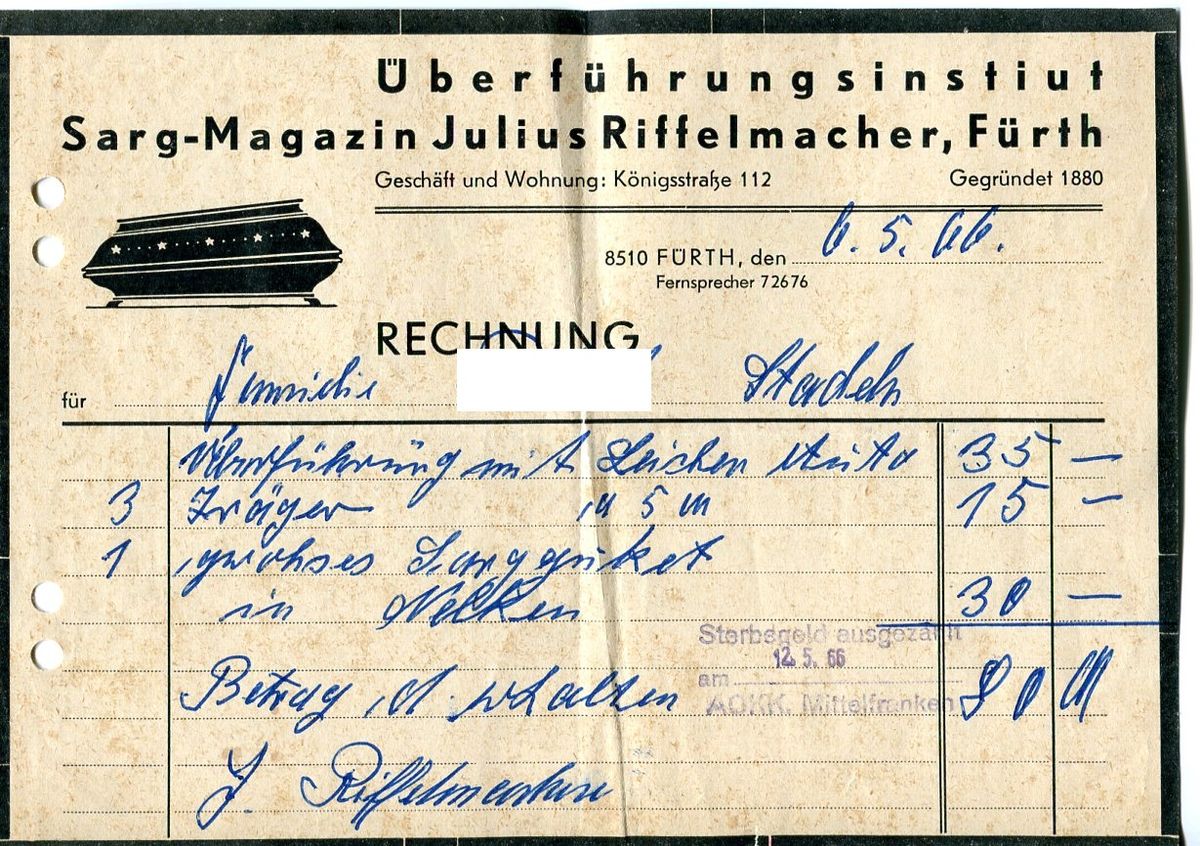 Überführungsinstiut
Sarg-Magazin Julius Riffelmacher, Fürth
Geschäft und Wohnung: Königsstraße 112 Gegründet 1880
8510 FÜRTH, den 6. 5. 66.
Fernsprecher 72676
RECHNUNG
für Familie Stadeln
Überführung mit Leichen Auto 35 —
3 Träger a 5 M 15 —
1 grohses Sargbuket
in Nelken 30 —
Sterbegeld ausgezahlt
12. 5. 66
am
AOKK. Mittelfranken
Betrag d. erhalten 80 M
J. Riffelmacher